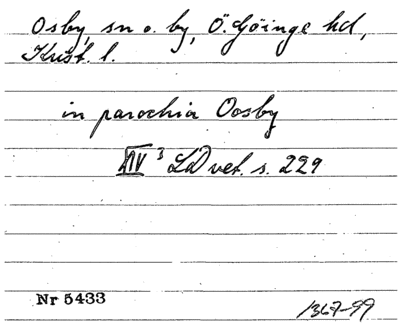 Osby, sn o. by, Ö. Göinge hd,
Krist. l.
in parochia Oosby
XIV 3 LD vet. s. 229
Nr 5433
1367-99